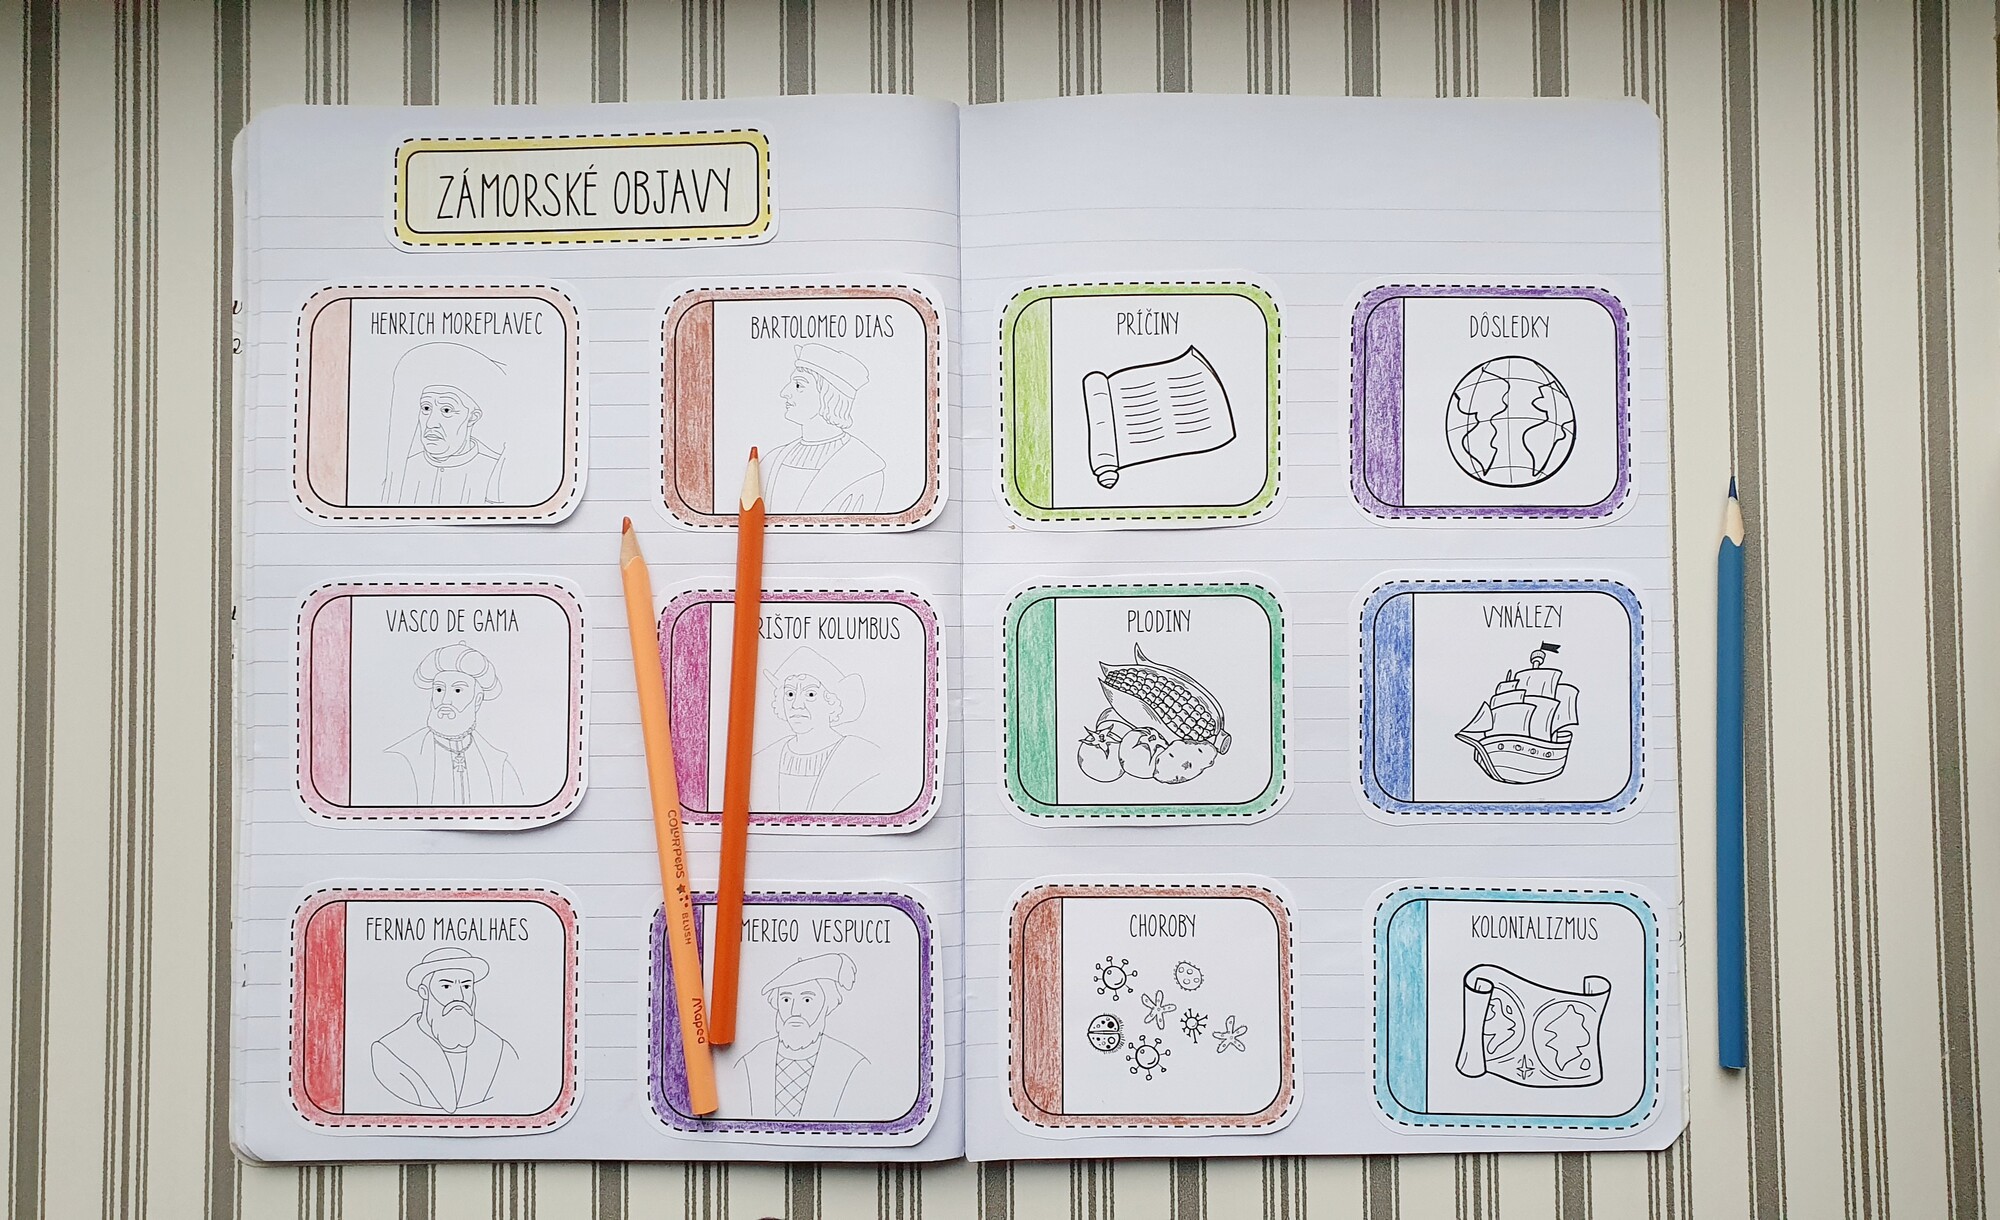 ZÁMORSKÉ OBJAVY
HENRICH MOREPLAVEC
BARTOLOMEO DIAS
VASCO DE GAMA
RIŠTOF KOLUMBUS
FERNAO MAGALHAES
MERIGO VESPUCCI
PRÍČINY
DÔSLEDKY
PLODINY
VYNÁLEZY
CHOROBY
KOLONIALIZMUS
COLOR'PEPS BLUSH Maped